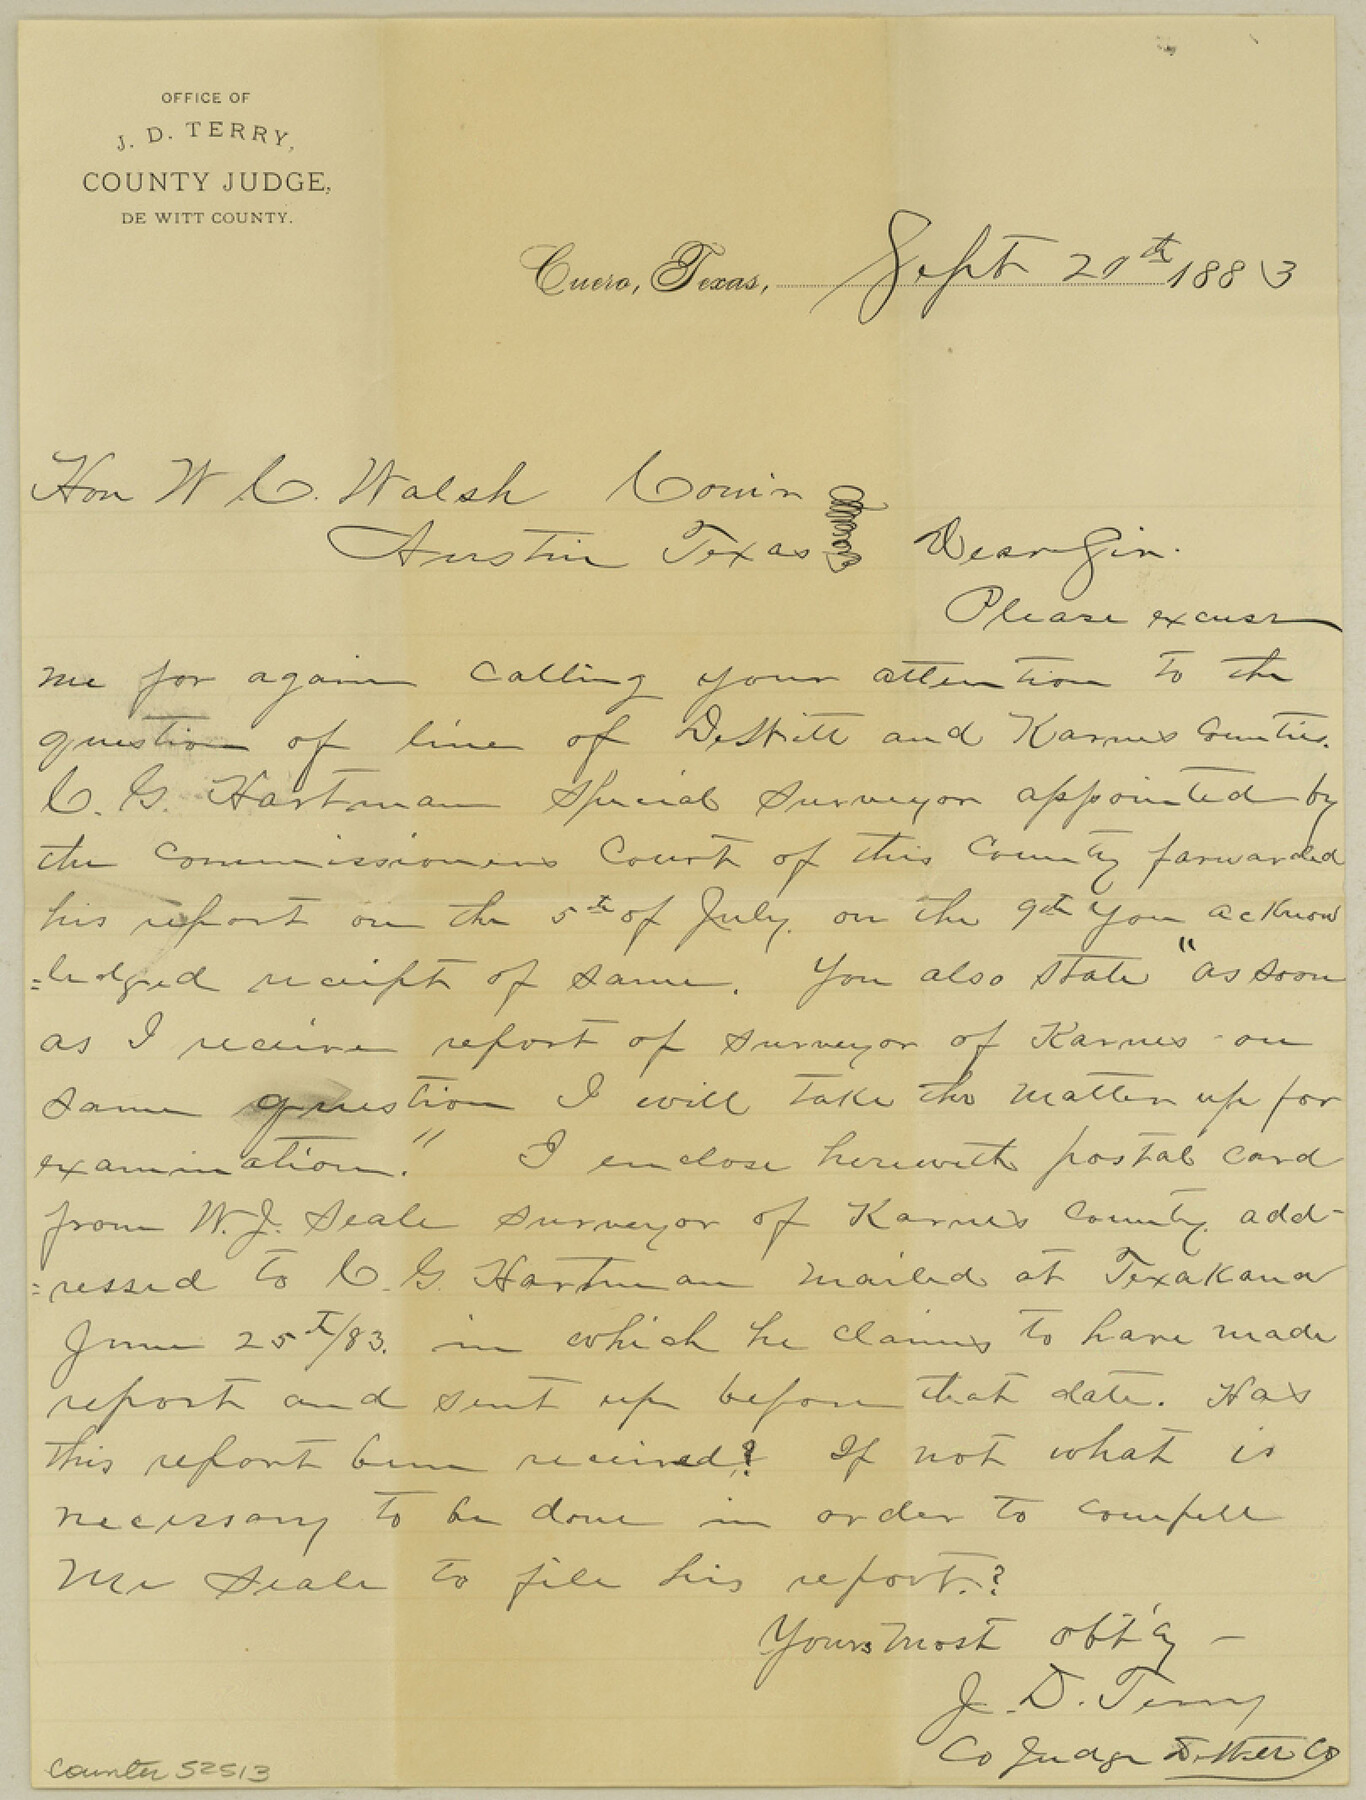 OFFICE OF
J. D. TERRY,
COUNTY JUDGE,
DE WITT COUNTY.
Cuero, Texas, Sept 20th 1883
Hon W C. Walsh Comr
Austin Texas Dear Sir.
Please excuse
me for again calling your attention to the
question of line of DeWitt and Karnes Counties.
C. G. Hartman Special Surveyor appointed by
the Commissioners Court of this County forwarded
his report on the 5th of July. on the 9th you acknow
=ledged receipt of same. You also state "as soon
as I receive report of surveyor of Karnes on
same question I will take the matter up for
examination." I enclose herewith postal card
from W. J. Seale surveyor of Karnes County add-
=ressed to C. G. Hartman mailed at Texakana
June 25th/83. in which he claims to have made
report and sent up before that date. Has
this report been received? If not what is
necessary to be done in order to compell
Mr Seale to file his report.?
Yours most obt'ly -
J. D. Terry
Co Judge DeWitt Co
Counter 52513